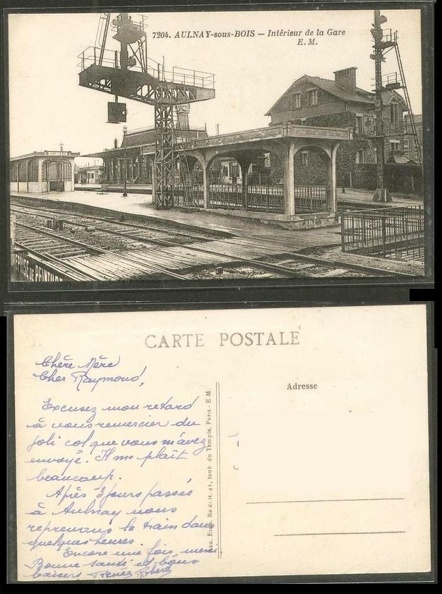 7204. AULNAY-sous-BOIS — Intérieur de la Gare
E. M.
CARTE POSTALE
Adresse
Chère Mère
Cher Raymond,
Excusez mon retard
à vous remercier du
joli col que vous m'avez
envoyé. Il me plaît
beaucoup.
Après 3 jours passés
à Aulnay nous
reprenons le train dans
quelques heures.
Encore une fois, merci
Bonne santé et bons
baisers
faub du Temple, Paris - E. M.